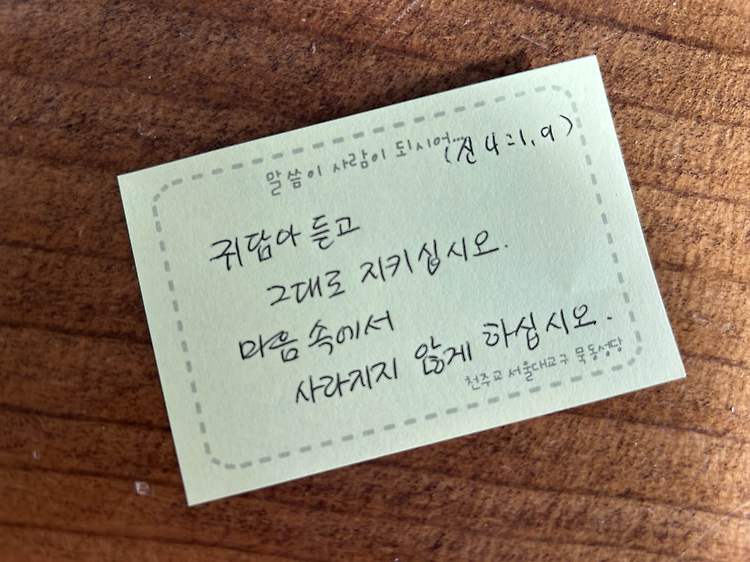 말씀이 사람이 되시어...
(신 4:1, 9)
귀담아 듣고
그대로 지키십시오.
마음 속에서
사라지지 않게 하십시오.
천주교 서울대교구 묵동성당